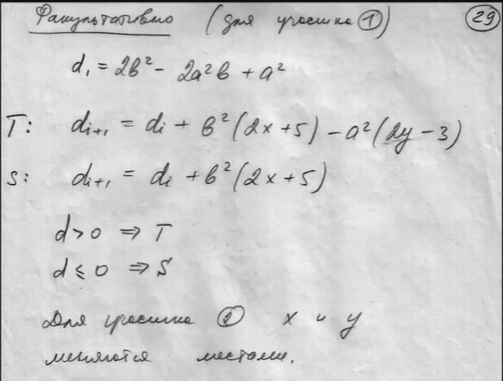 Факультативно (для участка ①) ㉙
d₁ = 2b² - 2a²b + a²
T: dᵢ₊₁ = dᵢ + b²(2x+5) - a²(2y-3)
S: dᵢ₊₁ = dᵢ + b²(2x+5)
d > 0 ⇒ T
d ≤ 0 ⇒ S
Для участка ② x и y
меняются местами.